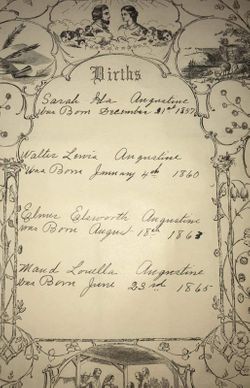 Births
Sarah Ida Augustine
was Born December 21st 1857
Walter Lewis Augustine
was Born January 4th 1860
Elmer Elsworth Augustine
was Born Augus 18th 1863
Maud Louella Augustine
was Born June 23rd 1865